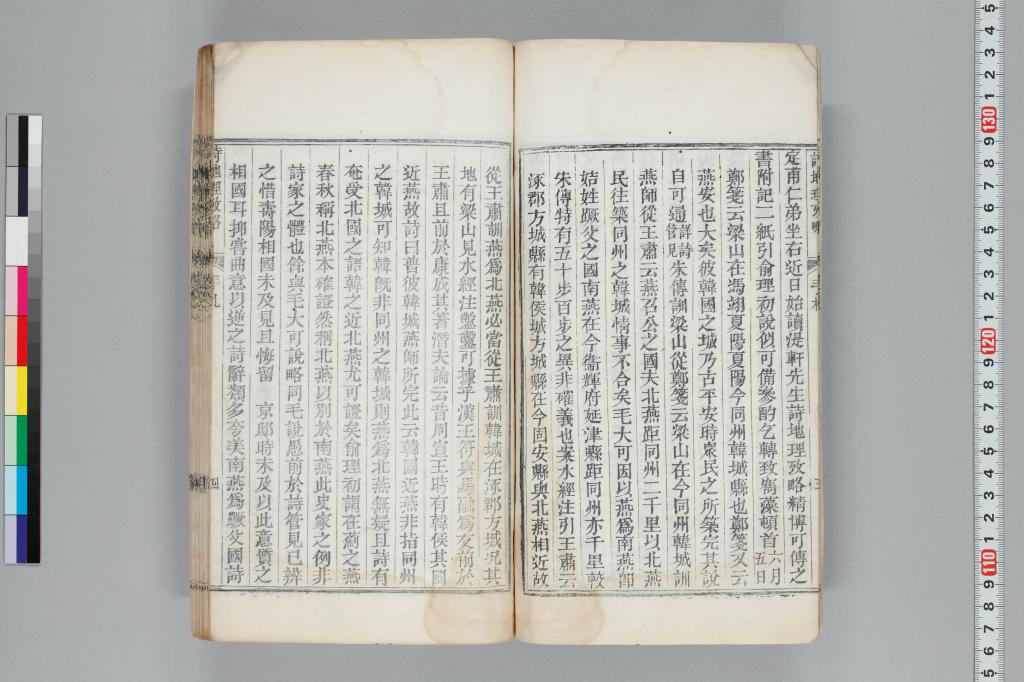 定甫仁弟坐右近日始讀湜軒先生詩地理攷略精博可傳之
書附記二紙引俞理初說似可備參酌乞轉致雋藻頓首六月五日
鄭箋云梁山在馮翊夏陽夏陽今同州韓城縣也鄭箋又云
燕安也大矣彼韓國之城乃古平安時衆民之所築完其說
自可通詳詩管見朱傳訓梁山從鄭箋云梁山在今同州韓城訓
燕師從王肅云燕召公之國夫北燕距同州二千里以北燕
民往築同州之韓城情事不合矣毛大可因以燕爲南燕卽
姞姓蹶父之國南燕在今衞輝府延津縣距同州亦千里較
朱傳特有五十步百步之異非確義也案水經注引王肅云
涿郡方城縣有韓侯城方城縣在今固安縣與北燕相近故
從王肅訓燕爲北燕必當從王肅訓韓城在涿郡方城况其
地有梁山見水經注鑿鑿可據乎漢王符與馬融爲友前於
王肅且前於康成其著潛夫論云昔周宣王時有韓侯其國
近燕故詩曰普彼韓城燕師所完此云韓國近燕非指同州
之韓城可知韓旣非同州之韓城則燕爲北燕無疑且詩有
奄受北國之語韓之近北燕尤可證矣俞理初謂在薊之燕
春秋稱北燕本確證然稱北燕以別於南燕此史家之例非
詩家之體也餘與毛大可說略同毛說愚前於詩管見已辨
之惜壽陽相國未及見且悔留 京邸時未及以此意質之
相國耳抑嘗曲意以逆之詩辭類多夸美南燕爲蹶父國詩
詩地理攷略
四